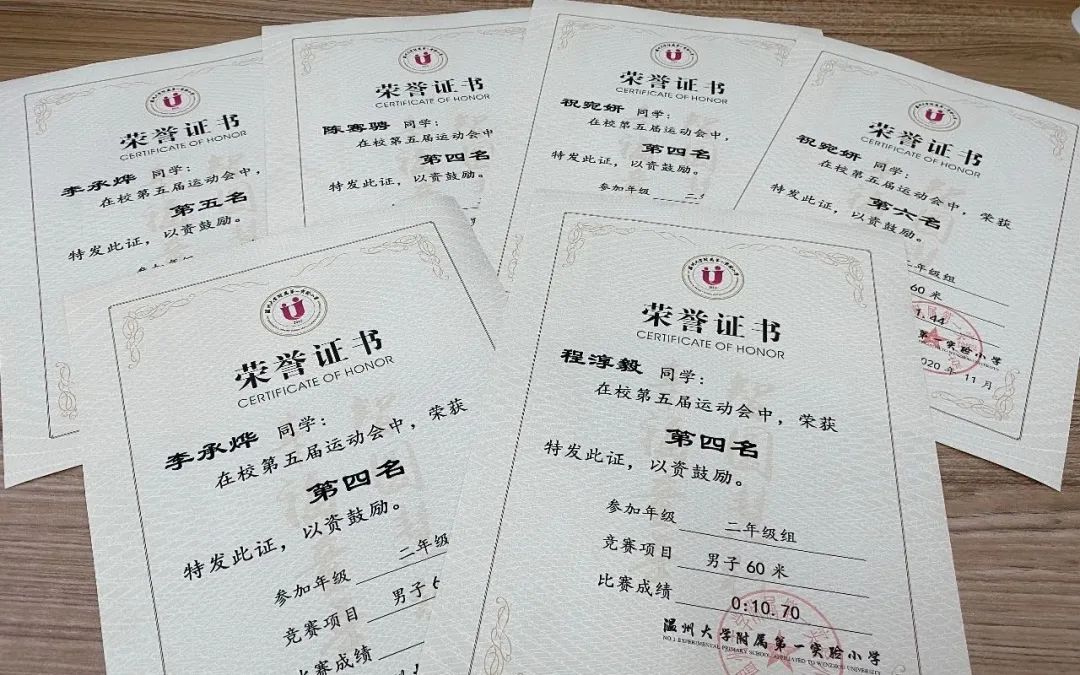 荣誉证书
CERTIFICATE OF HONOR
李承烨 同学：
在校第五届运动会中，
第五名
特发此证，以资鼓励。
荣誉证书
CERTIFICATE OF HONOR
陈骞骋 同学：
在校第五届运动会中
第四名
特发此证，以资鼓励。
荣誉证书
CERTIFICATE OF HONOR
祝宛妍 同学：
在校第五届运动会中，
第四名
特发此证，以资鼓励。
参加年级 二
荣誉证书
CERTIFICATE OF HONOR
祝宛妍 同学：
在校第五届运动会中，荣获
第六名
特发此证，以资鼓励。
二年级组
60 米
1.44
第一实验小学
2020 年 11 月
荣誉证书
CERTIFICATE OF HONOR
李承烨 同学：
在校第五届运动会中，荣获
第四名
特发此证，以资鼓励。
参加年级 二年级
竞赛项目 男子
比赛成绩
荣誉证书
CERTIFICATE OF HONOR
程淳毅 同学：
在校第五届运动会中，荣获
第四名
特发此证，以资鼓励。
参加年级 二年级组
竞赛项目 男子 60 米
比赛成绩 0:10.70
温州大学附属第一实验小学
NO.1 EXPERIMENTAL PRIMARY SCHOOL AFFILIATED TO WENZHOU UNIVERSITY